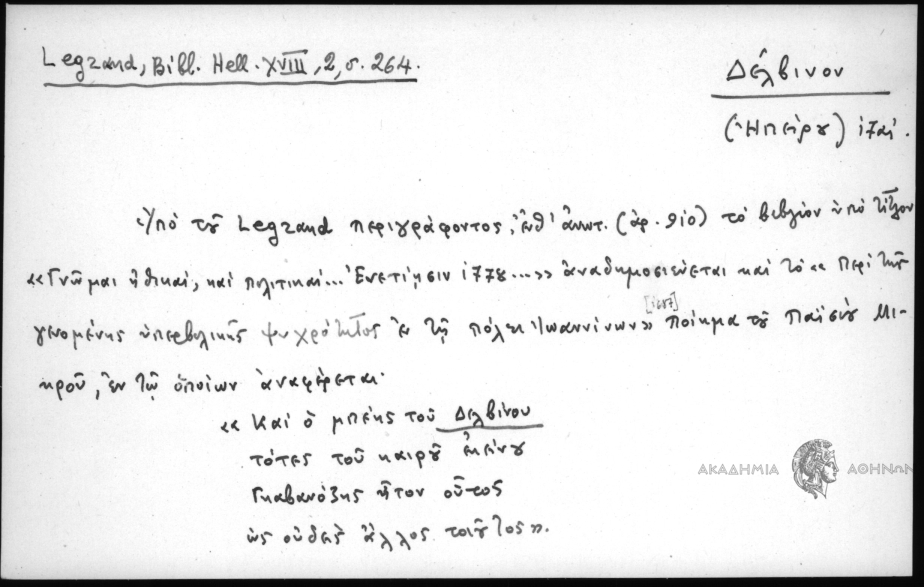 Legrand, Bibl. Hell. XVIII, 2, σ. 264.
Δέλβινον
(Ἠπείρου)
Ὑπὸ τοῦ Legrand περιγράφοντος, ἔνθ' ἀνωτ. (ἀρ. ) τὸ βιβλίον ὑπὸ τίτλον
«Γνῶμαι ἠθικαί, καὶ πολιτικαί... Ἐνετίησιν ...» ἀναδημοσιεύεται καὶ τὸ «Περὶ τῆς
γενομένης ὑπερβολικῆς ψυχρότητος ἐν τῇ πόλει Ἰωαννίνων» ποίημα τοῦ Παϊσίου Μι-
κροῦ, ἐν τῷ ὁποίῳ ἀναφέρεται·
«Καὶ ὁ μπέης τοῦ Δελβίνου
τότες τοῦ καιροῦ ἐκείνου
Γκαβανόζης ἦτον οὗτος
ὡς οὐδεὶς ἄλλος τοιοῦτος».
ΑΚΑΔΗΜΙΑ ΑΘΗΝΩΝ